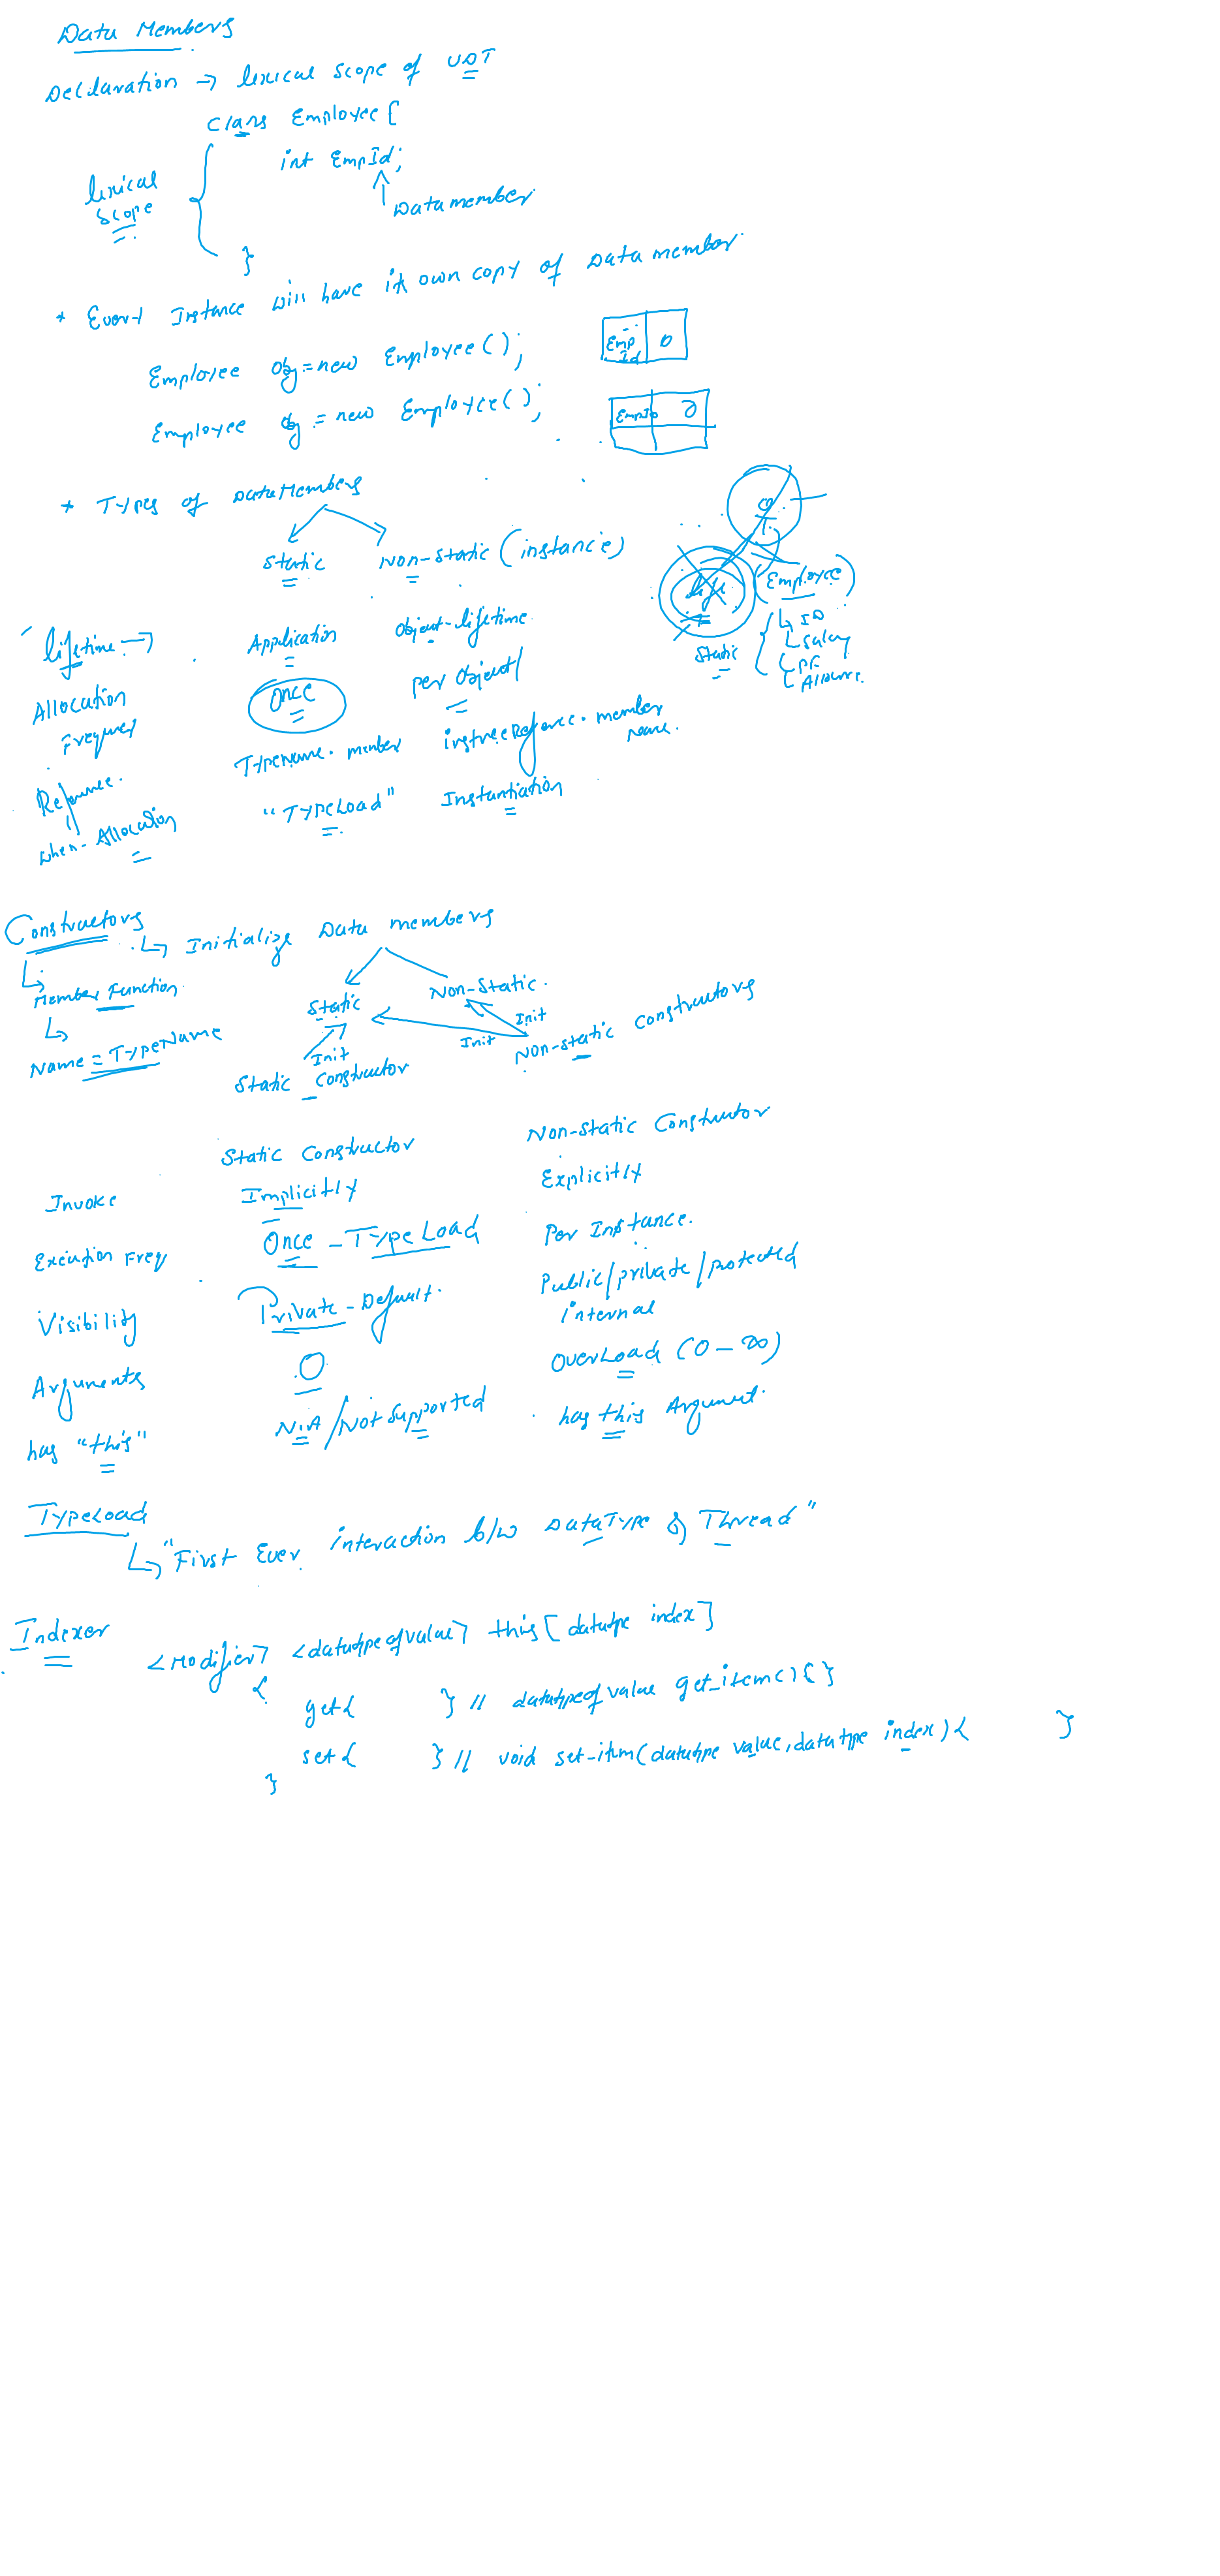 Data Members
Declaration → lexical scope of UDT
Class Employee {
int EmpId;
lexical
scope
Data member
}
* Every Instance will have its own copy of Data member.
Employee obj = new Employee();
Emp Id 0
Employee obj = new Employee();
EmpId 0
* Types of Data Members
Static Non-Static (instance)
Employee
ID
Salary
PF
Allowance.
Static
lifetime → Application Object-lifetime.
Allocation Frequency Once per Object/
Reference. TypeName. member instance Reference. member name.
When-Allocation "TypeLoad" Instantiation
Constructors
Initialize Data members
Member Function
Static Non-Static.
Name = TypeName
Init Init Init
Non-static Constructors
Static Constructor
Static Constructor Non-Static Constructor
Invoke Implicitly Explicitly
Execution Freq Once - Type Load Per Instance.
Visibility Private - Default. Public/private/protected
internal
Arguments 0 OverLoad (0-∞)
has "this" N.A /Not Supported has this Argument.
TypeLoad
"First Ever interaction b/w DataType & Thread"
Indexer <Modifier> <datatype of value> this [datatype index]
{
get{ } // datatype of value get_item(){}
set{ } // void set-item(datatype value, datatype index){ }
}